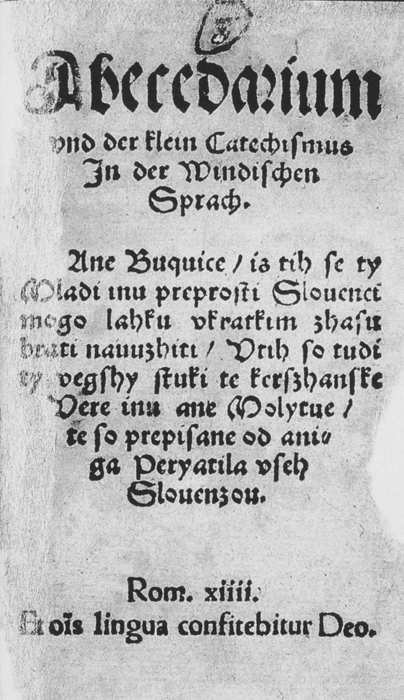 Abecedarium
vnd der klein Catechismus
In der Windischen
Sprach.
Ane Buquice / is tih se ty
Mladi inu preprosti Slouenci
mogo lahku vkratkim zhasu
brati nauuzhiti / Vtih so tudi
ty vegshy stuki te kerszhanske
Vere inu ane Molytue /
te so prepisane od aniga
Peryatila vseh
Slouenzou.
Rom. xiiii.
Et oīs lingua confitebitur Deo.